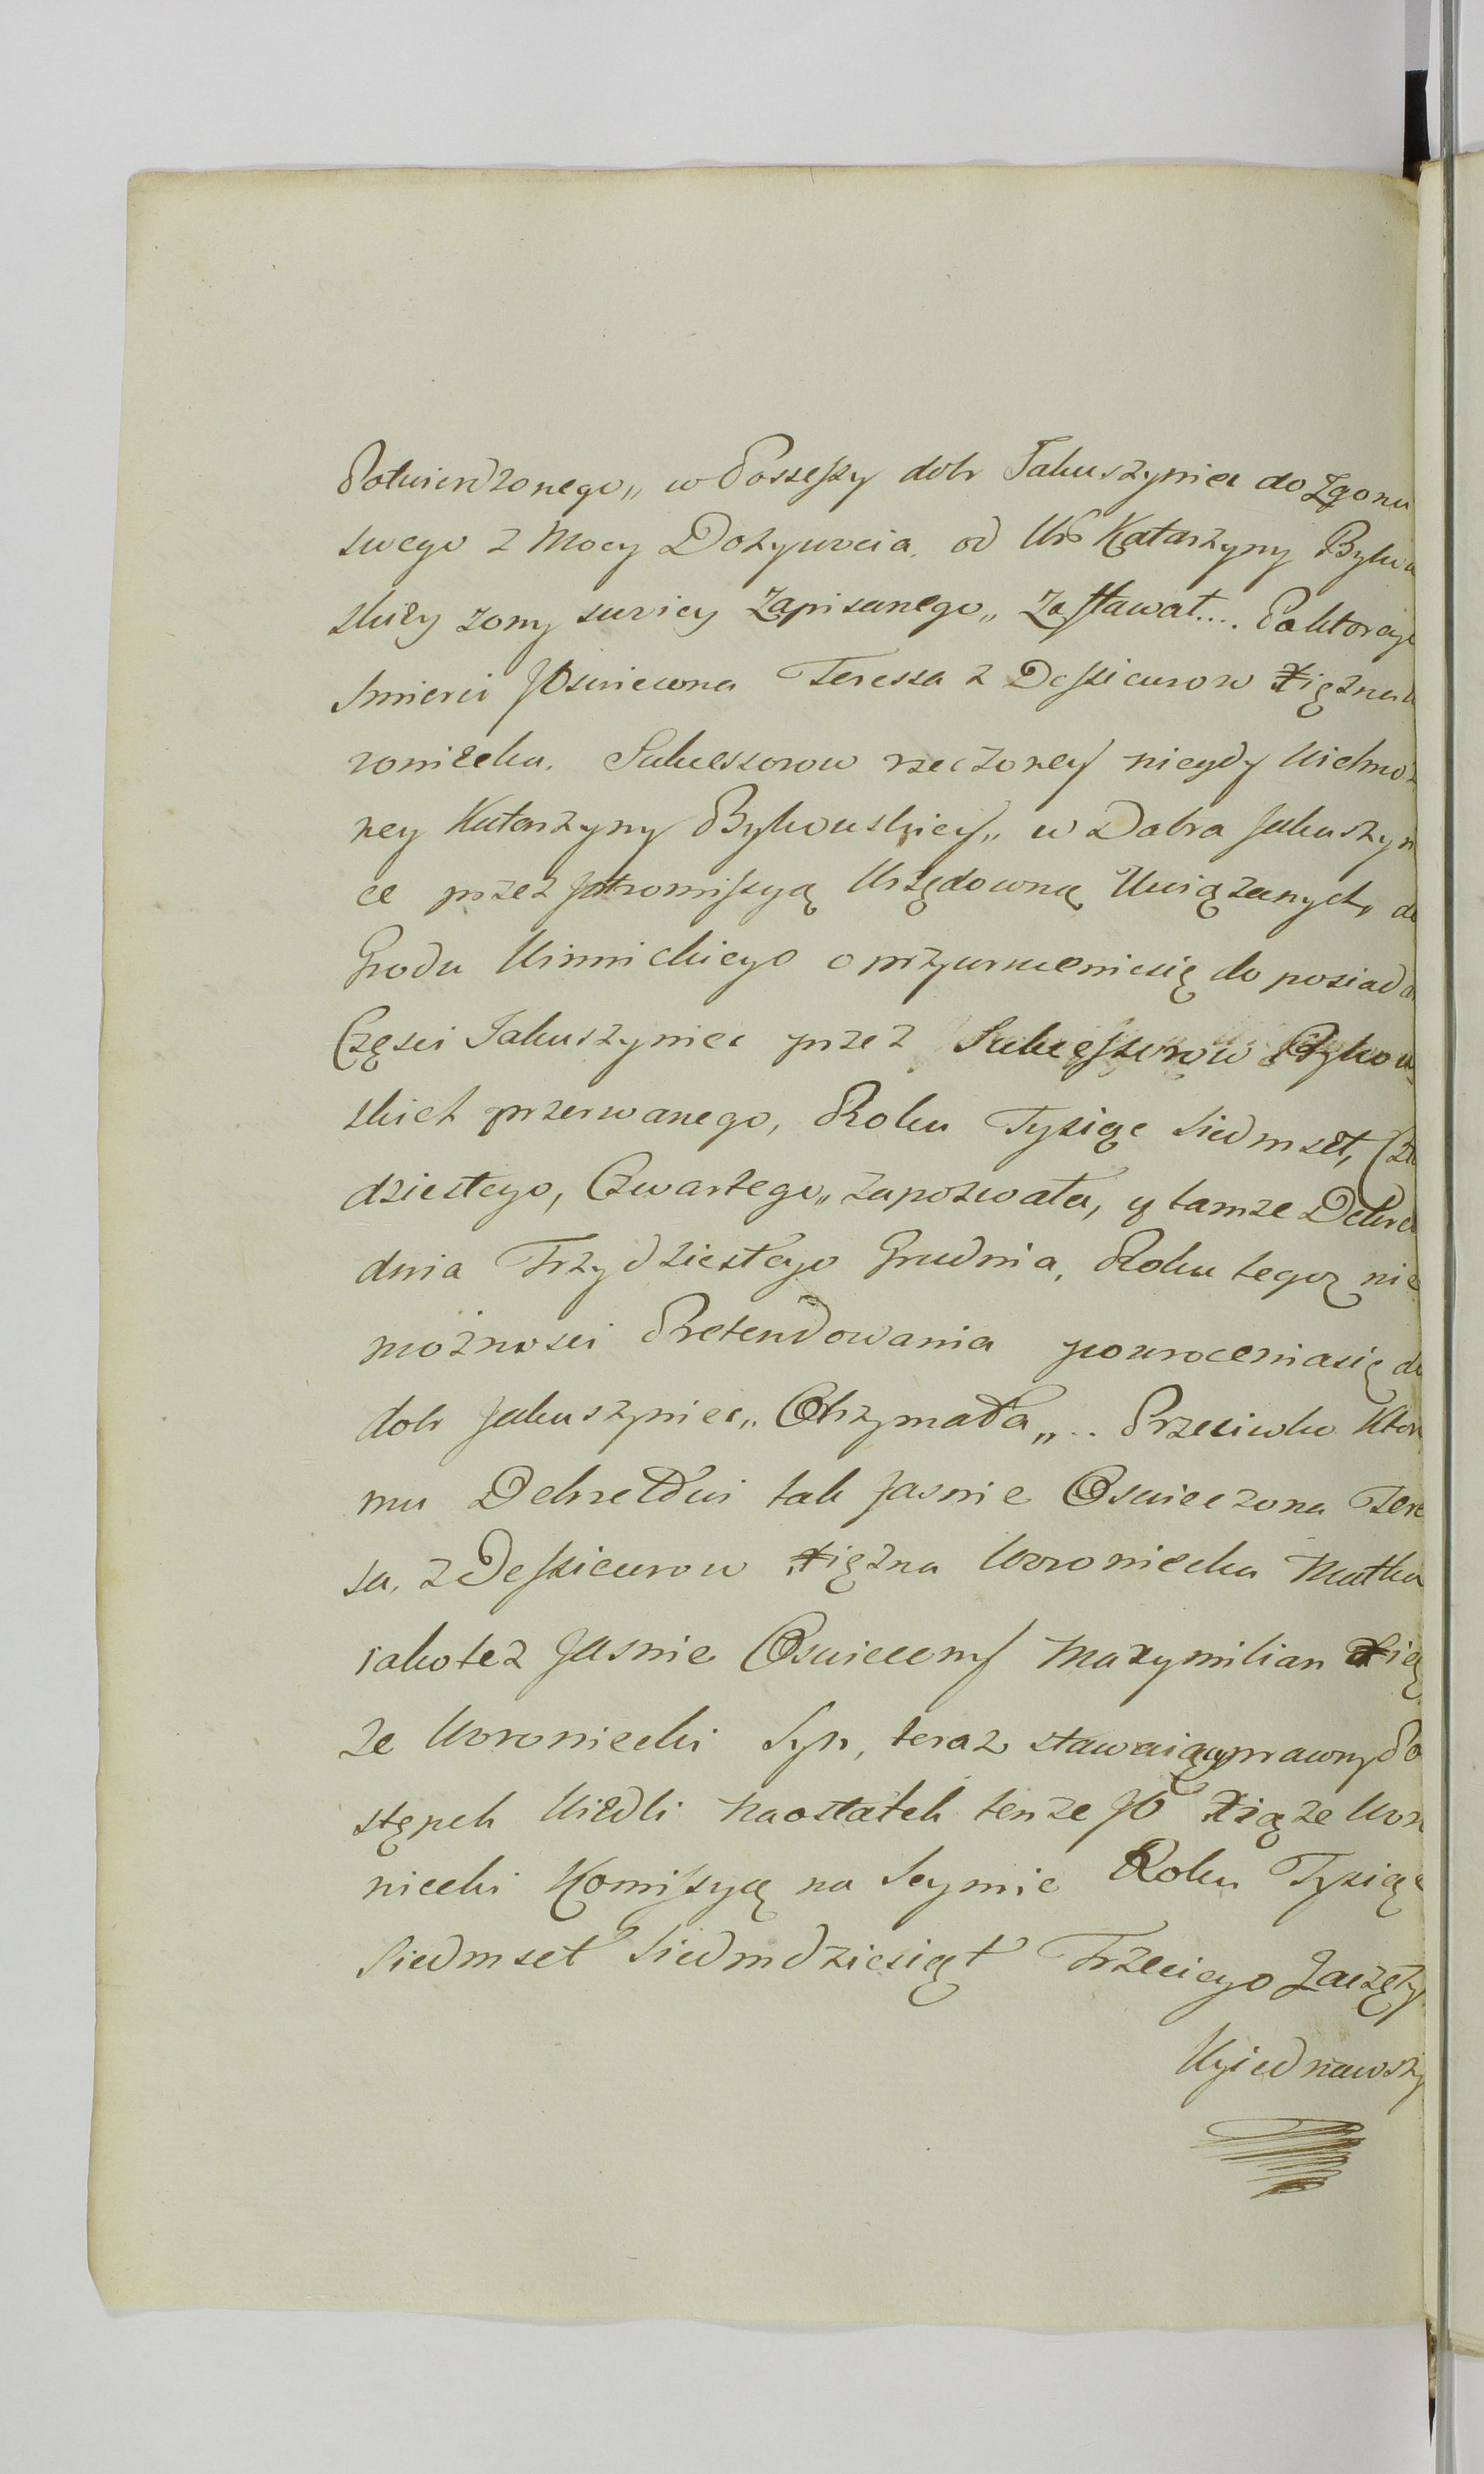 Potwierdzonego,, w Possessy dobr Jakuszyniec do Zgonu
swego z Mocy Dozywocia. od Ur Katarzyny Byko
skiey zony swoiey Zapisanego,, Zostawał.... Po ktorey
Smierci JOswiecona Teressa z Dessieurow Xiężna
roniecka. Sukcessorow rzeczoney niegdy Wielmoż
ney Katarzyny Bykowskiey,, w Dobra Jakuszyn
ce przez Jntromissyą Urzędowną Uwiązanych, do
Grodu Winnickiego o przywrucenie się do posiada
Częsci Jakuszyniec przez Sukcessorow Bykow
skich przerwanego, Roku Tysiąc Siedmset,
dziestego, Czwartego,, zapozwała, y tamze Dekre
dnia Trzydziestego Grudnia, Roku tegoz nie
możnosci Pretendowania powrocenia się do
dobr Jakuszyniec,, Otrzymała,,.. Przeciwko Ktor
mu Dekretowi tak Jasnie Oswieczona Tere
sa, z Dessieurow Xiężna Woroniecka Matka
iako tez Jasnie Oswiecony Maxymilian Xią
ze Woroniecki Syn, teraz stawaiący prawny Po
stępek Wiedli Naostatek tenze JO Xiąze Woro
niecki Komissyą na Seymie Roku Tysiąc
Siedmset Siedmdziesiąt Trzeciego Zaczęty
Wyiednawszy